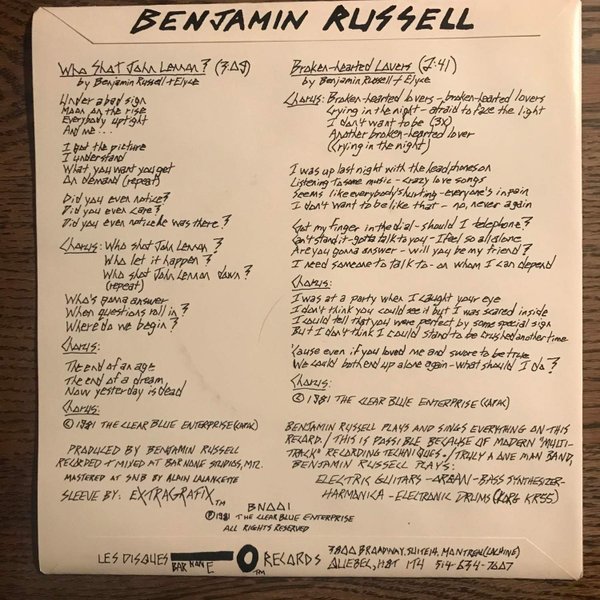 BENJAMIN RUSSELL
Who Shot John Lennon? (3:03)
by Benjamin Russell + Elyce
Under a bad sign
Moon on the rise
Everybody uptight
And me...
I got the picture
I understand
What you want you get
On demand (repeat)
Did you even notice?
Did you even care?
Did you even notice he was there?
Chorus: Who shot John Lennon?
Who let it happen?
Who shot John Lennon down?
(repeat)
Who's gonna answer
When questions roll in?
Where do we begin?
Chorus:
The end of an age
The end of a dream
Now yesterday is dead
Chorus:
© 1981 THE CLEAR BLUE ENTERPRISE (CAPAC)
PRODUCED BY BENJAMIN RUSSELL
RECORDED + MIXED AT BAR NONE STUDIOS, MTL.
MASTERED AT SNB BY ALAIN LALANCETTE
SLEEVE BY: EXTRAGRAFIX TM
Broken-hearted Lovers (3:41)
by Benjamin Russell + Elyce
Chorus: Broken-hearted lovers - broken-hearted lovers
Crying in the night - afraid to face the light
I don't want to be (3X)
Another broken-hearted lover
(Crying in the night)
I was up last night with the headphones on
Listening to some music - crazy love songs
Seems like everybody's hurting - everyone's in pain
I don't want to be like that - no, never again
Got my finger in the dial - should I telephone?
Can't stand it - gotta talk to you - I feel so all alone
Are you gonna answer - will you be my friend?
I need someone to talk to - on whom I can depend
Chorus:
I was at a party when I caught your eye
I don't think you could see it but I was scared inside
I could tell that you were perfect by some special sign
But I don't think I could stand to be crushed another time
'Cause even if you loved me and swore to be true
We could both end up alone again - what should I do?
Chorus:
© 1981 THE CLEAR BLUE ENTERPRISE (CAPAC)
BENJAMIN RUSSELL PLAYS AND SINGS EVERYTHING ON THIS
RECORD. / THIS IS POSSIBLE BECAUSE OF MODERN "MULTI-
TRACK" RECORDING TECHNIQUES. / TRULY A ONE MAN BAND,
BENJAMIN RUSSELL PLAYS:
ELECTRIC GUITARS - ORGAN - BASS SYNTHESIZER -
HARMONICA - ELECTRONIC DRUMS (KORG KR55)
BN001
℗ 1981 THE CLEAR BLUE ENTERPRISE
ALL RIGHTS RESERVED
LES DISQUES BAR NONE TM RECORDS
3800 BROADWAY, SUITE 14, MONTREAL (LACHINE)
QUEBEC, H8T 1T4 514-634-7007